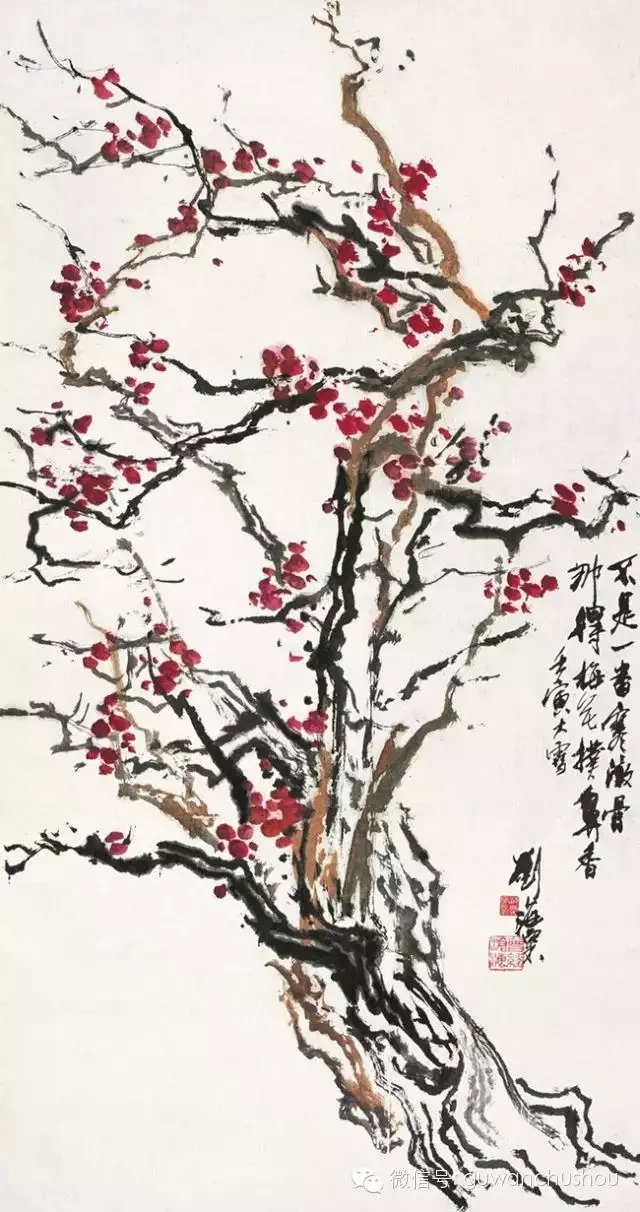 不是一番寒澈骨
那得梅花撲鼻香
壬寅大雪
劉海粟
微信号: guwanchushou